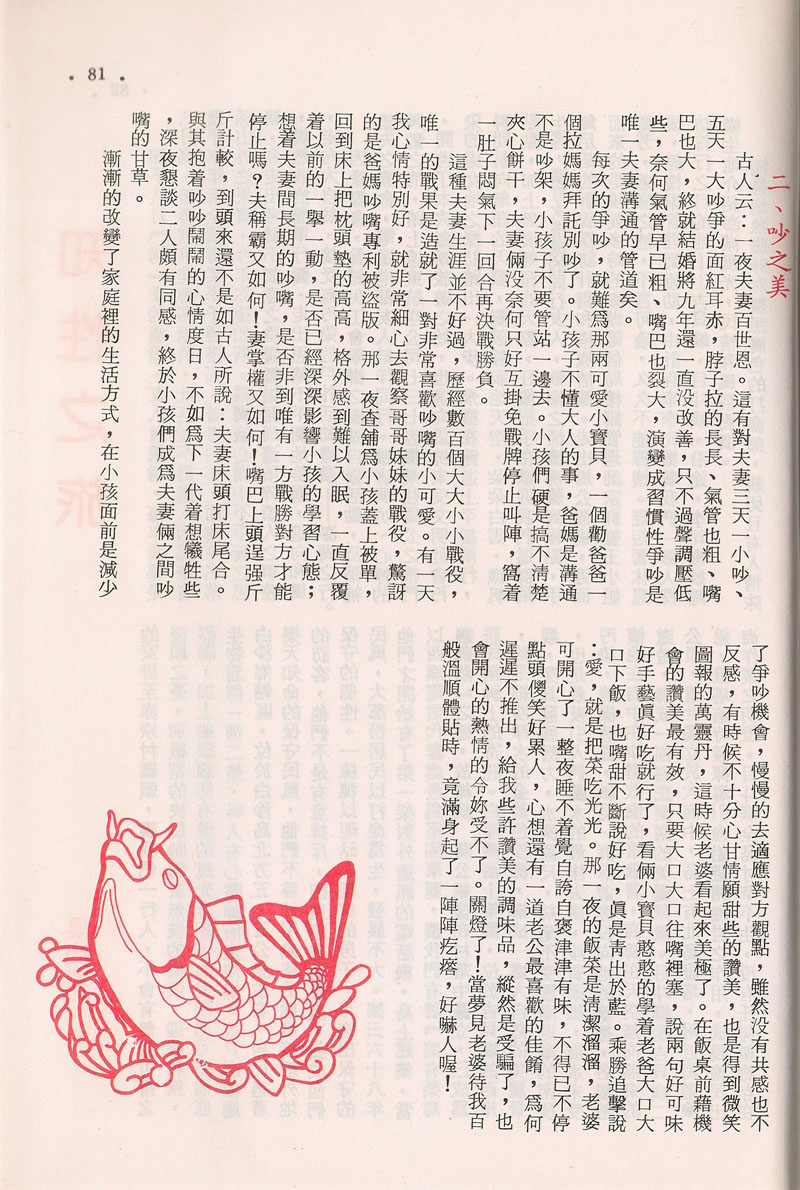 81
二、吵之美
古人云：一夜夫妻百世恩。這有對夫妻三天一小吵、
五天一大吵爭的面紅耳赤，脖子拉的長長、氣管也粗、嘴
巴也大，終就結婚將九年還一直没改善，只不過聲調壓低
些，奈何氣管早已粗、嘴巴也裂大，演變成習慣性爭吵是
唯一夫妻溝通的管道矣。
每次的爭吵，就難爲那兩可愛小寶貝，一個勸爸爸一
個拉媽媽拜託別吵了。小孩子不懂大人的事，爸媽是溝通
不是吵架，小孩子不要管站一邊去。小孩們硬是搞不清楚
夾心餅干，夫妻倆没奈何只好互掛免戰牌停止叫陣，窩着
一肚子悶氣下一回合再決戰勝負。
這種夫妻生涯並不好過，歷經數百個大大小小戰役，
唯一的戰果是造就了一對非常喜歡吵嘴的小可愛。有一天
我心情特別好，就非常細心去觀察哥哥妹妹的戰役，驚訝
的是爸媽吵嘴專利被盜版。那一夜查舖爲小孩蓋上被單，
回到床上把枕頭墊的高高，格外感到難以入眠，一直反覆
着以前的一舉一動，是否已經深深影響小孩的學習心態；
想着夫妻間長期的吵嘴，是否非到唯有一方戰勝對方才能
停止嗎？夫稱霸又如何！妻掌權又如何！嘴巴上頭逞强斤
斤計較，到頭來還不是如古人所說：夫妻床頭打床尾合。
與其抱着吵吵鬧鬧的心情度日，不如爲下一代着想犧牲些
，深夜懇談二人頗有同感，終於小孩們成爲夫妻倆之間吵
嘴的甘草。
漸漸的改變了家庭裡的生活方式，在小孩面前是減少
了爭吵機會，慢慢的去適應對方觀點，雖然没有共感也不
反感，有時候不十分心甘情願甜些的讚美，也是得到微笑
圖報的萬靈丹，這時候老婆看起來美極了。在飯桌前藉機
會的讚美最有效，只要大口大口往嘴裡塞，說兩句好可味
好手藝眞好吃就行了，看倆小寶貝憨憨的學着老爸大口大
口下飯，也嘴甜不斷說好吃，眞是靑出於藍。乘勝追擊說
：愛，就是把菜吃光光。那一夜的飯菜是淸潔溜溜，老婆
可開心了一整夜睡不着覺自誇自褒津津有味，不得已不停
點頭傻笑好累人，心想還有一道老公最喜歡的佳餚，爲何
遲遲不推出，給我些許讚美的調味品，縱然是受騙了，也
會開心的熱情的令妳受不了。關燈了！當夢見老婆待我百
般溫順體貼時，竟滿身起了一陣陣疙瘩，好嚇人喔！